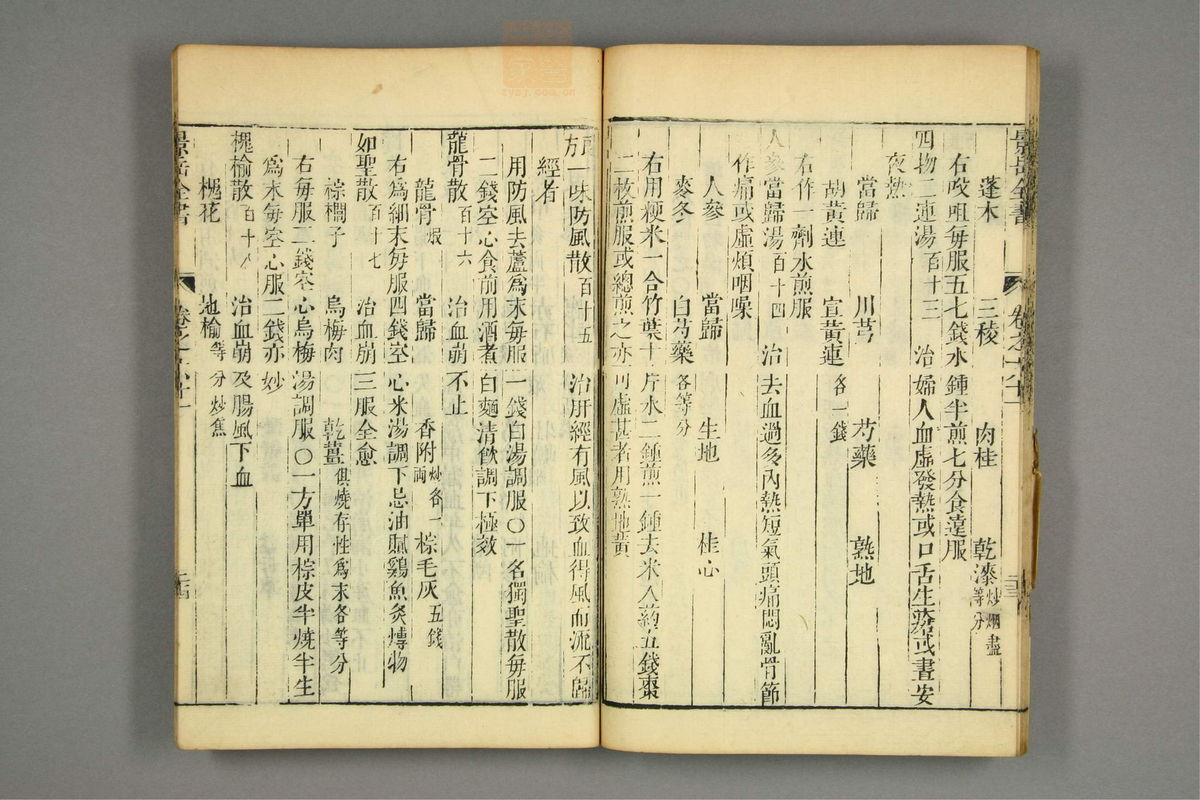 景岳全書 卷之六十一 三十三
蓬木 三稜 肉桂 乾漆炒烟盡等分
右㕮咀每服五七錢水一鍾半煎七分食遠服
四物二連湯百十三 治婦人血虛發熱或口舌生瘡或晝安
夜熱
當歸 川芎 芍藥 熟地
胡黃連 宣黃連各一錢
右作一劑水煎服
人參當歸湯百十四 治去血過多內熱短氣頭痛悶亂骨節
作痛或虛煩咽噪
人參 當歸 生地 桂心
麥冬 白芍藥各等分
右用粳米一合竹葉十片水二鍾煎一鍾去米入藥五錢棗
二枚煎服或總煎之亦可虛甚者用熟地黃
一味防風散百十五 治肝經有風以致血得風而流不歸
經者
用防風去蘆爲末每服一錢白湯調服〇一名獨聖散每服
二錢空心食前用酒煮白麵清飲調下極效
龍骨散百十六 治血崩不止
龍骨煅 當歸 香附炒各一兩 棕毛灰五錢
右爲細末每服四錢空心米湯調下忌油膩鷄魚炙煿物
如聖散百十七 治血崩三服全愈
棕櫚子 烏梅肉〇一方 乾薑俱燒存性爲末各等分
右每服二錢空心烏梅湯調服〇一方單用棕皮半燒半生
爲末每空心服二錢亦妙
槐榆散百十八 治血崩及腸風下血
槐花 地榆等分炒焦
景岳全書 卷之六十一 三十四